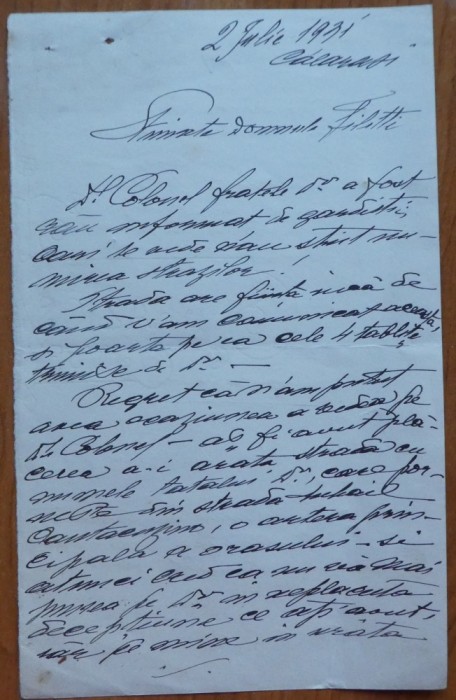 2 Julie 1931
Calarasi
Stimate domnule Filitti
Dl. Colonel fratele Dv. a fost
rău informat de gardistii,
cari se vede n'au stiut nu-
mirea strazilor!
Strada are fiinta încă de
când v'am comunicat aceasta,
si poarta pe ea cele 4 tablite
trimise de Dv. —
Regret că n'am putut
avea ocaziunea a vedea pe
Dl. Colonel — as fi avut plă-
cerea a-i arata strada cu
numele tatalui Dv., care por-
neste din strada Mihail
Cantacuzino, o artera prin-
cipala a orasului — si
atunci cred ca nu vă mai
punea pe Dv. in neplacuta
deceptiune ce ati avut,
iar pe mine in